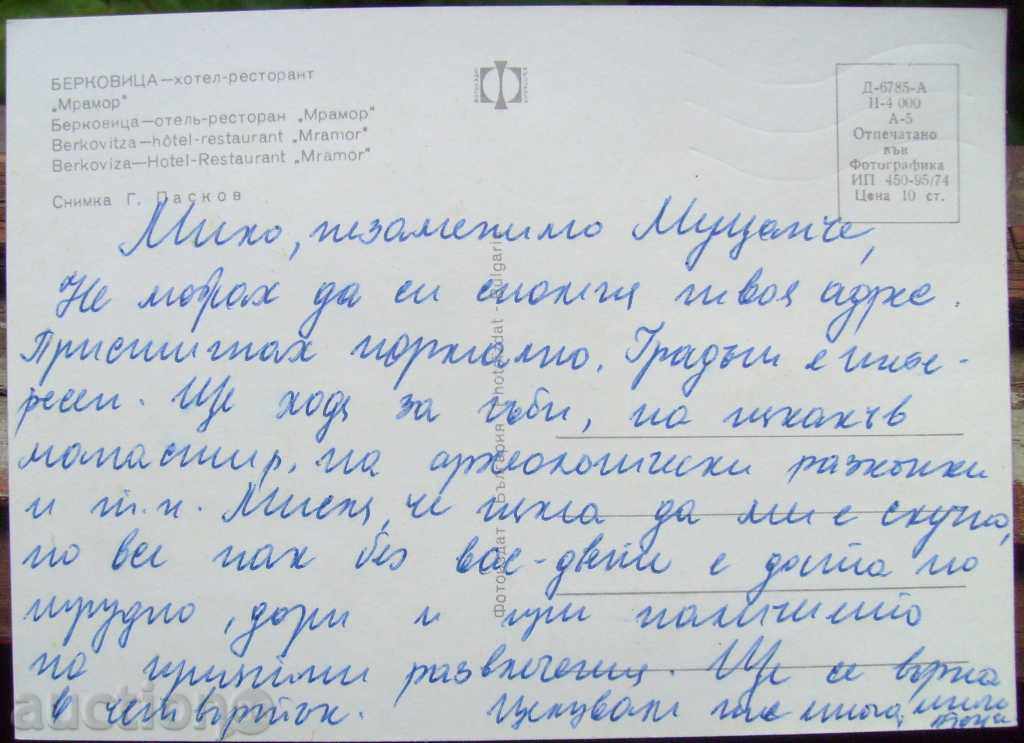 БЕРКОВИЦА—хотел-ресторант
„Мрамор"
Берковица—отель-ресторан „Мрамор"
Berkovitza—hôtel-restaurant „Mramor"
Berkoviza—Hotel-Restaurant „Mramor"
Снимка Г. Пасков
Д-6785-А
II-4 000
А-5
Отпечатано
във
Фотографика
ИП 450-95/74
Цена 10 ст.
Фотоиздат България Photoizdat - Bulgaria
Мило, незаменимо Муцанче,
Не можах да си спомня твоя адрес.
Пристигнах нормално. Градът е инте-
ресен. Ще ходя за гъби, на някакъв
манастир, на археологически разкопки
и т.н. Мисля, че няма да ми е скучно,
но все пак без вас-двете е доста по
трудно, дори и при наличието
на приятни развлечения. Ще се върна
в четвъртък. Целувам те много,
auction